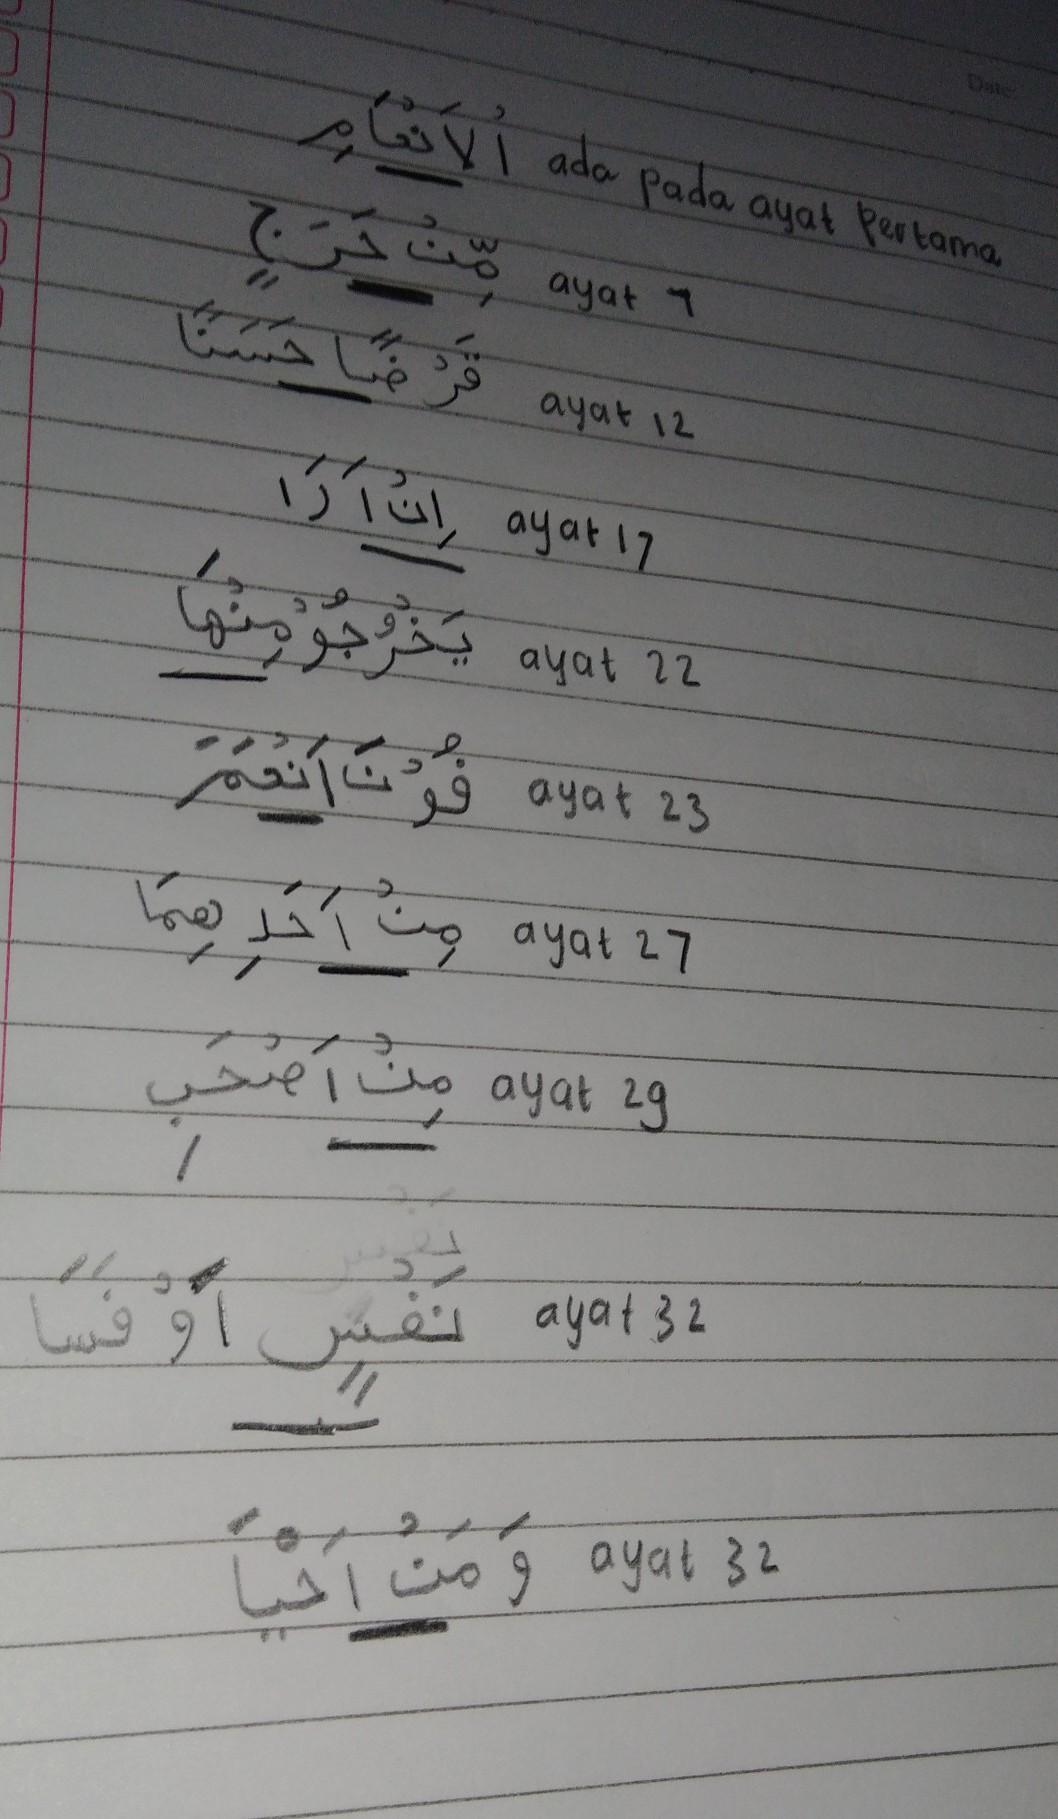 Date:
اْلاَنْعَامِ ada pada ayat Pertama
مِّنْ حَرَجٍ ayat 7
قَرْضًا حَسَنًا ayat 12
اِنْ اَرَا ayat 17
يَخْرُجُوْمِنْهَا ayat 22
فُوْنَ اَنْعَمَ ayat 23
مِنْ اَحَدِهِمَا ayat 27
مِنْ اَصْحَبِ ayat 29
نَفْسٍ اَوْ فَسًا ayat 32
وَ مَنْ اَحْيَا ayat 32